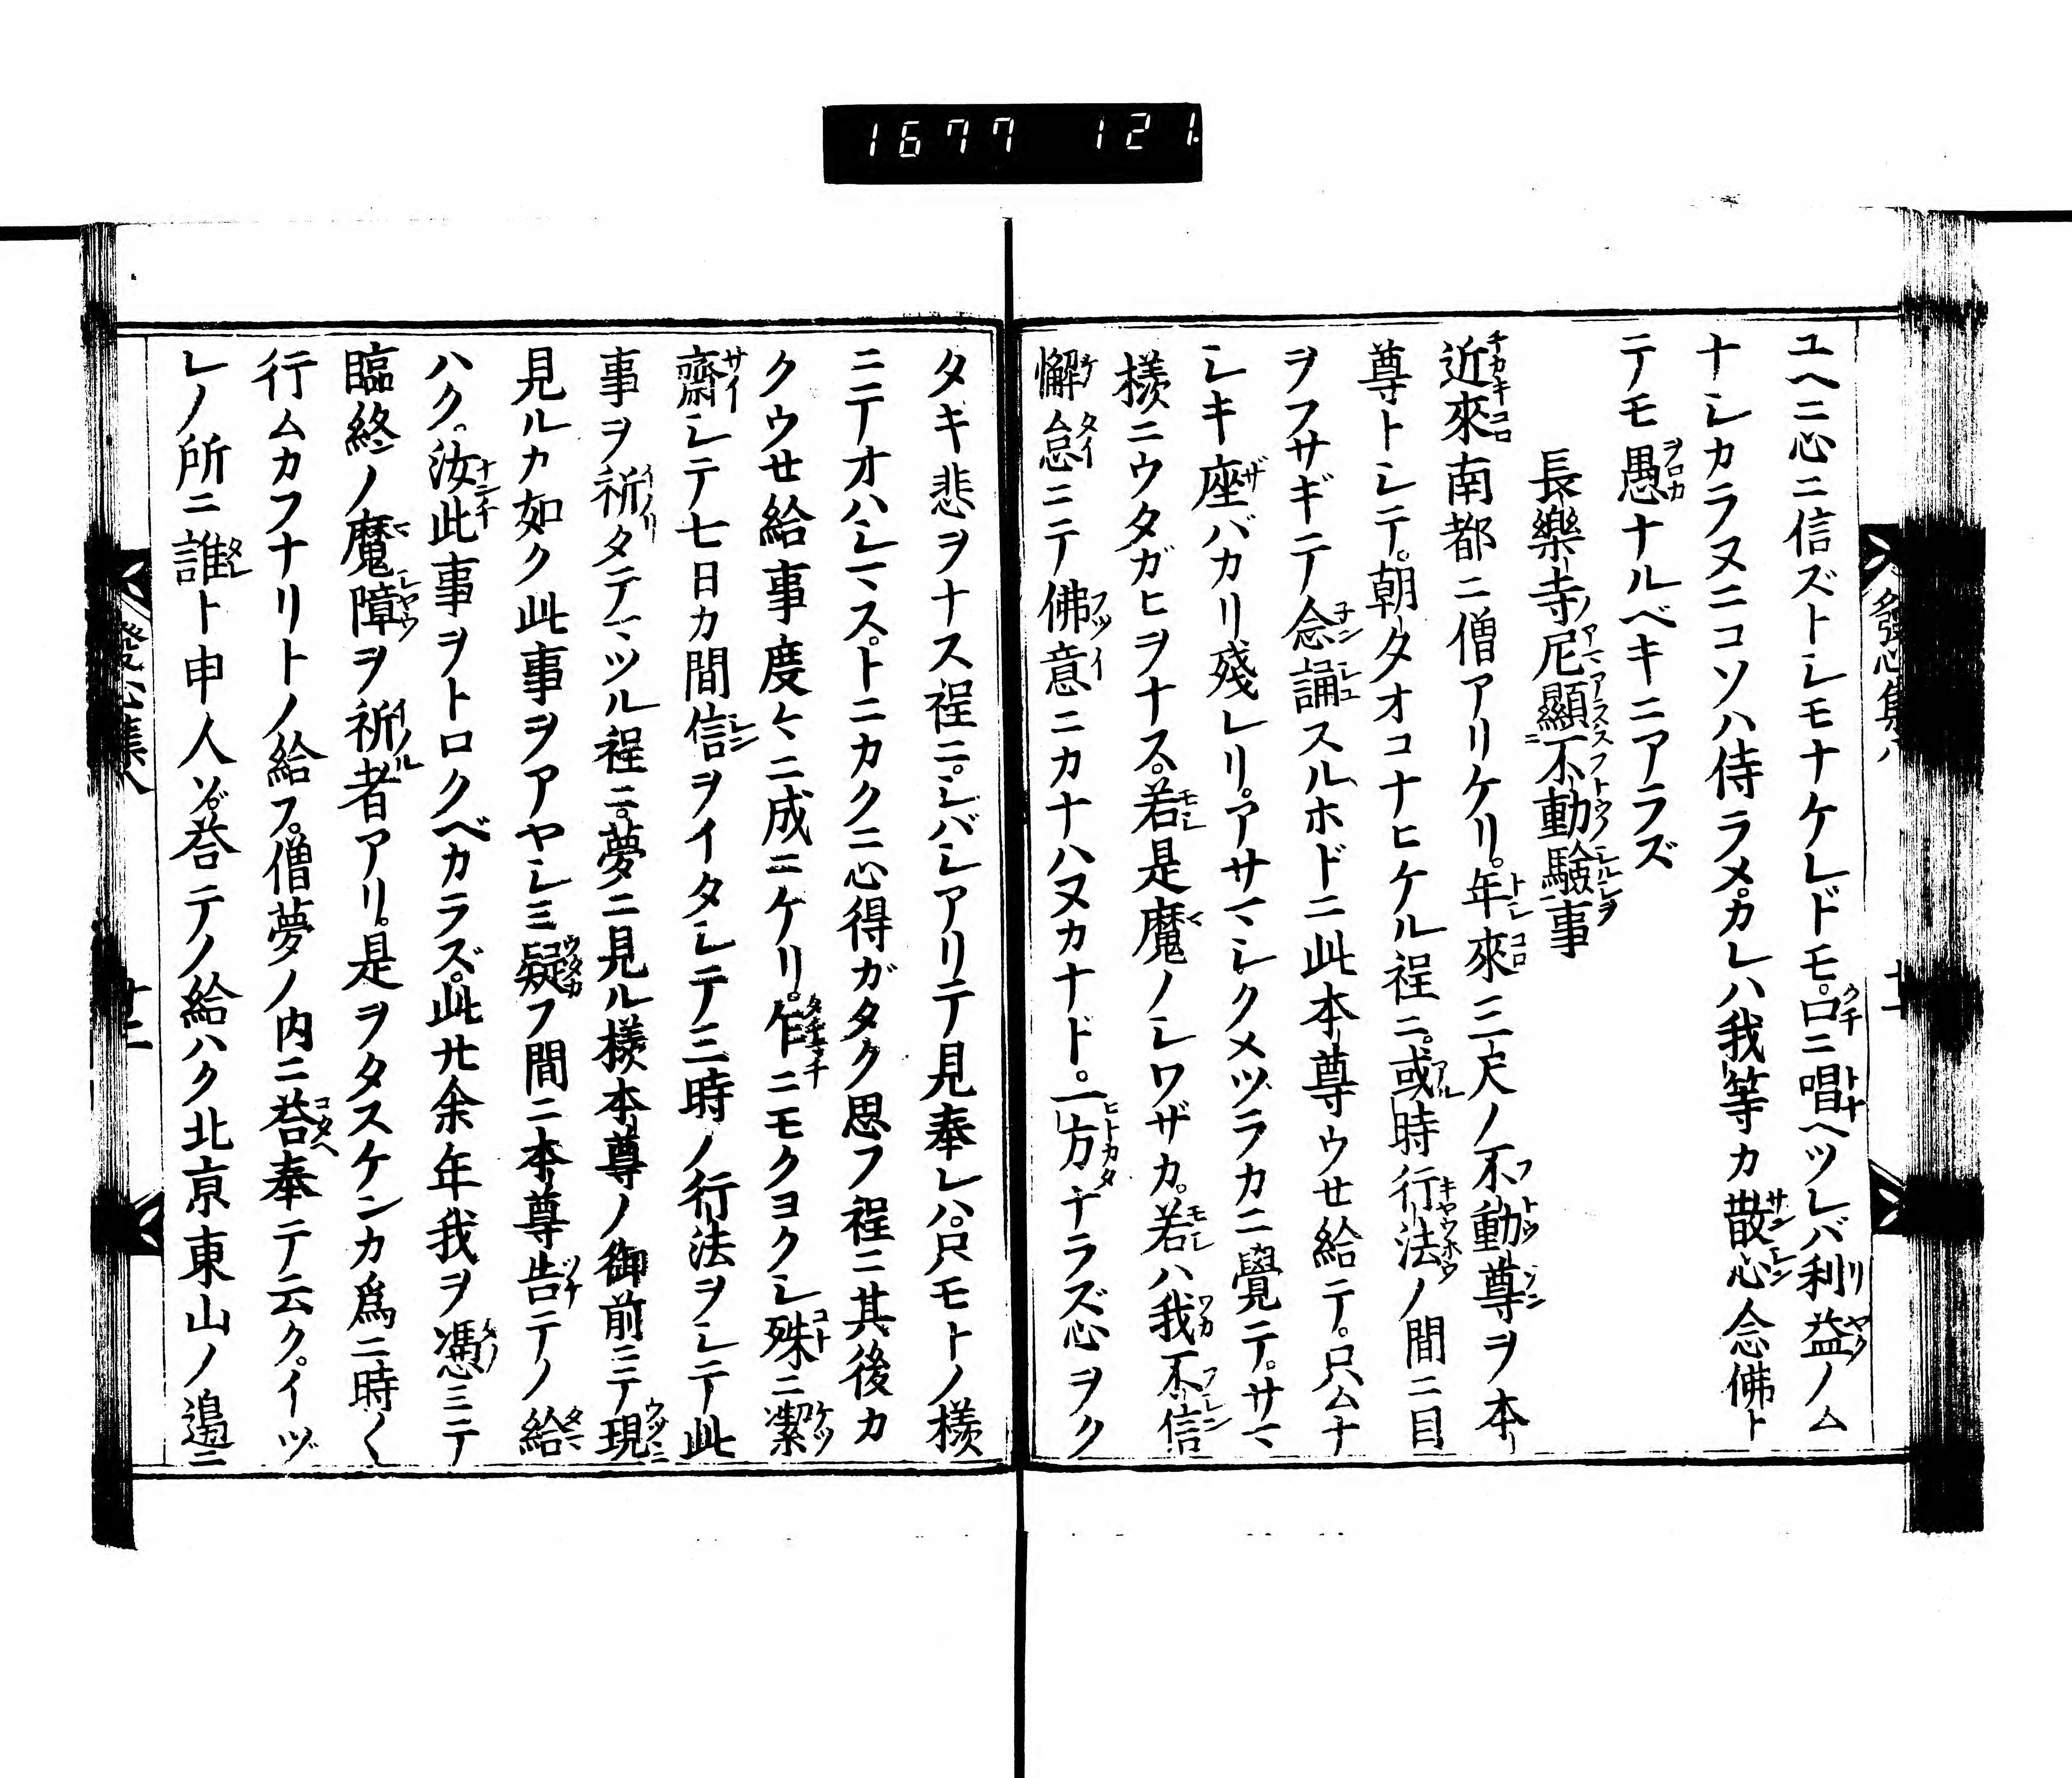 1677 121
ユヘニ心ニ信ズトシモナケレドモ。口ニ唱ヘツレバ利益ノム
ナシカラヌニコソハ侍ラメ。カレハ我等カ散心念佛ト
テモ愚ナルベキニアラズ
長樂寺ノ尼顯不動驗事
近來南都ニ僧アリケリ。年來三尺ノ不動尊ヲ本
尊トシテ。朝タオコナヒケル程ニ。或時行法ノ間ニ目
ヲフサギテ念誦スルホドニ此本尊ウせ給テ。只ムナ
シキ座バカリ殘レリ。アサマシクメヅラカニ覺テ。サマ
樣ニウタガヒヲナス。若是魔ノシワザカ。若ハ我不信
懈怠ニテ佛意ニカナハヌカナド。一方ナラズ心ヲク
タキ悲ヲナス程ニ。シバシアリテ見奉レハ。只モトノ樣
ニテオハシマス。トニカクニ心得ガタク思フ程ニ其後カ
クウせ給事度々ニ成ニケリ。忽ニモクヨクシ殊ニ潔
齋シテ七日カ間信ヲイタシテ三時ノ行法ヲシテ此
事ヲ祈タテマツル程ニ。夢ニ見ル樣本尊ノ御前ニテ現
見ルカ如ク此事ヲアヤシミ疑フ間ニ本尊告テノ給
ハク。汝此事ヲトロクベカラズ。此廿余年我ヲ憑ミテ
臨終ノ魔障ヲ祈者アリ。是ヲタスケンカ爲ニ時〱
行ムカフナリトノ給フ。僧夢ノ内ニ荅奉テ云ク。イヅ
レノ所ニ誰ト申人ソ。荅テノ給ハク北京東山ノ邊ニ
發心集八